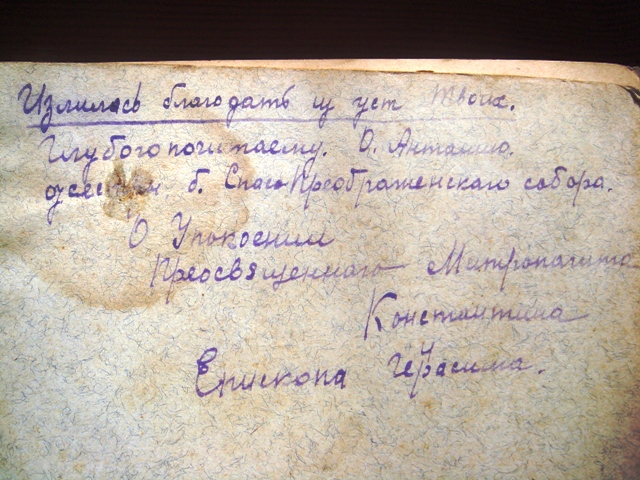 Излилась благодать из уст Твоих.
Глубогопочитаему. О. Антонию.
б. Спасо Преображенскаго собора.
О Упокоении
Преосвященнаго Митрополита
Константина
Епископа Герасима.